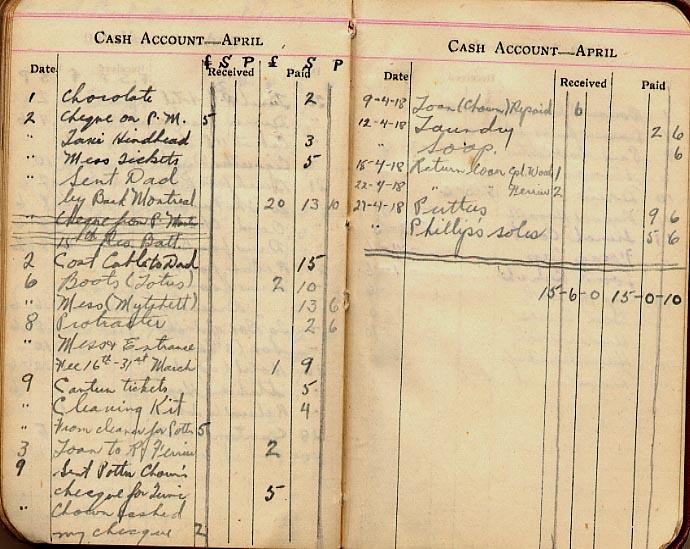 CASH ACCOUNT—APRIL
£ S P £ S P
Date Received Paid
1 Chocolate 2
2 Cheque on P. M. 5
" Taxi Hindhead 3
" Mess Tickets 5
" Sent Dad
by Bank Montreal 20 13 10
" Cheque from P. Mont
15th Res. Batt.
2 Cost Cable to Dad 15
6 Boots (Lotus) 2 10
" Mess (Mytchett) 13 6
8 Protractor 2 6
" Mess & Entrance
Fee 16th-31st March 1 9
9 Canteen tickets 5
" Cleaning Kit 4
" From cleaner for Potts 5
3 Loan to R Ferrier 2
9 Sent Potter Chown's
checque for 5
" Chown cashed
my checque 2
CASH ACCOUNT—APRIL
Date Received Paid
9-4-18 Loan (Chown) Repaid 6
12-4-18 Laundry 2 6
Soap. 6
15-4-18 Return loan Cpl. Wood 1
22-4-18 " " Ferrier 2
27-4-18 Puttus 9 6
" Phillips soles 5 6
15-6-0 15-0-10